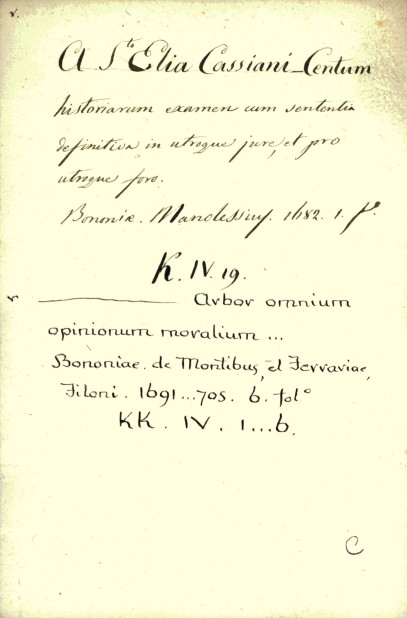 A S.to Elia Cassiani_Centum
historiarum examen cum sententia
definitiva in utroque jure, et pro
utroque foro.
Bononiæ. Manolessius. 1682. 1. f.o
K. IV. 19.
——— Arbor omnium
opinionum moralium ...
Bononiae. de Montibus, et Ferrariae,
Filoni. 1691...705. 6. fol.o
KK. IV. 1...6.
C